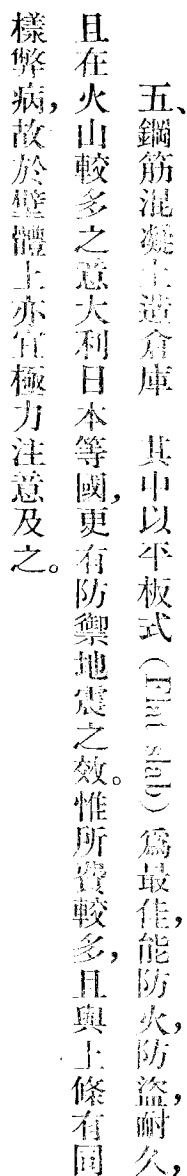 五、鋼筋混凝土造倉庫　其中以平板式(Flat slab)爲最佳,能防火,防盜,耐久,
且在火山較多之意大利日本等國,更有防禦地震之效。惟所費較多,且與上條有同
樣弊病,故於壁體上亦宜極力注意及之。